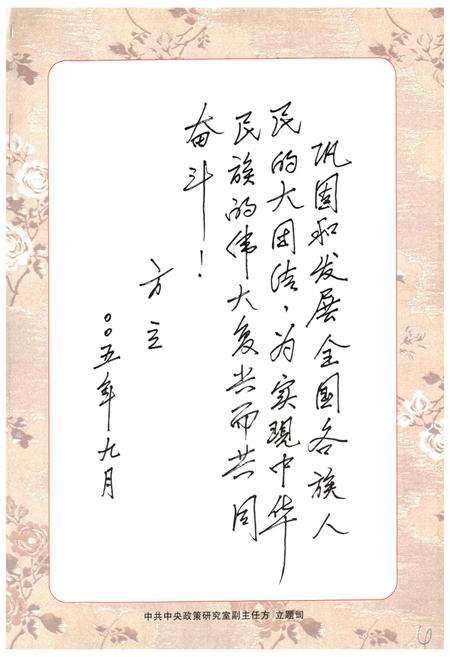 巩固和发展全国各族人
民的大团结，为实现中华
民族的伟大复兴而共同
奋斗！
方立
二〇〇五年九月
中共中央政策研究室副主任方 立题词